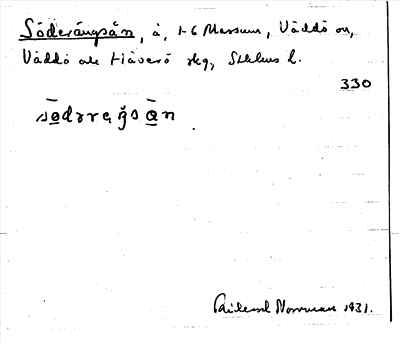 Söderängsån, å, 1-6 Massum, Väddö sn,
Väddö och Häverö skg, Sthlms l.
330
sødrreŋsån
Rickard Norrman 1931.